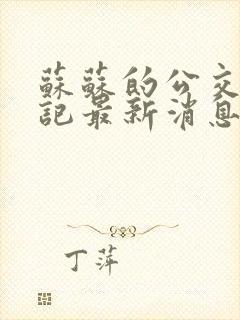 蘇蘇的公交
記最新消息
丁萍